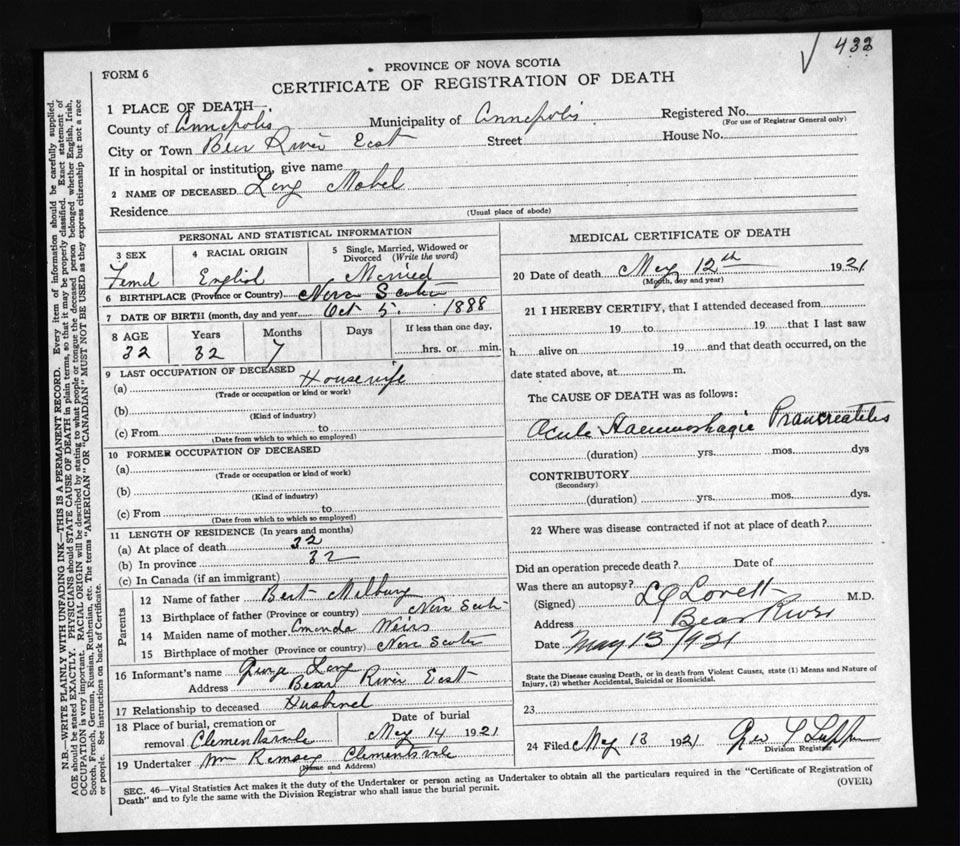 432
FORM 6
PROVINCE OF NOVA SCOTIA
CERTIFICATE OF REGISTRATION OF DEATH
1 PLACE OF DEATH
County of Annapolis Municipality of Annapolis Registered No.
(For use of Registrar General only)
City or Town Bear River East Street House No.
If in hospital or institution, give name
2 NAME OF DECEASED Long Mabel
Residence
(Usual place of abode)
PERSONAL AND STATISTICAL INFORMATION
3 SEX 4 RACIAL ORIGIN 5 Single, Married, Widowed or Divorced (Write the word)
Femal English Married
6 BIRTHPLACE (Province or Country) Nova Scotia
7 DATE OF BIRTH (month, day and year) Oct 5. 1888
8 AGE Years Months Days If less than one day,
32 32 7 hrs. or min.
9 LAST OCCUPATION OF DECEASED
(a) Housewife
(Trade or occupation or kind or work)
(b)
(Kind of industry)
(c) From to
(Date from which to which so employed)
10 FORMER OCCUPATION OF DECEASED
(a)
(Trade or occupation or kind of work)
(b)
(Kind of industry)
(c) From to
(Date from which to which so employed)
11 LENGTH OF RESIDENCE (In years and months)
(a) At place of death 32
(b) In province 32
(c) In Canada (if an immigrant)
Parents
12 Name of father Bert Milbury
13 Birthplace of father (Province or country) Nova Scotia
14 Maiden name of mother Amanda
15 Birthplace of mother (Province or Country) Nova Scotia
16 Informant's name George Long
Address Bear River East
17 Relationship to deceased Husband
18 Place of burial, cremation or Date of burial
removal Clementsvale May 14 1921
19 Undertaker Wm Ramsey Clementsvale
(Name and Address)
MEDICAL CERTIFICATE OF DEATH
20 Date of death May 12th 1921
(Month, day and year)
21 I HEREBY CERTIFY, that I attended deceased from
19 to 19 that I last saw
h alive on 19 and that death occurred, on the
date stated above, at m.
The CAUSE OF DEATH was as follows:
Acute Haemorrhagic Pancreatitis
(duration) yrs. mos. dys
CONTRIBUTORY
(Secondary)
(duration) yrs. mos. dys.
22 Where was disease contracted if not at place of death?
Did an operation precede death? Date of
Was there an autopsy?
(Signed) Lovett M.D.
Address Bear River
Date May 13 1921
State the Disease causing Death, or in death from Violent Causes, state (1) Means and Nature of
Injury, (2) whether Accidental, Suicidal or Homicidal.
23
24 Filed May 13 1921 Geo
Division Registrar
SEC. 46—Vital Statistics Act makes it the duty of the Undertaker or person acting as Undertaker to obtain all the particulars required in the "Certificate of Registration of
Death" and to fyle the same with the Division Registrar who shall issue the burial permit.
(OVER)
N.B.—WRITE PLAINLY WITH UNFADING INK—THIS IS A PERMANENT RECORD. Every item of information should be carefully supplied.
AGE should be stated EXACTLY. PHYSICIANS should STATE CAUSE OF DEATH in plain terms, so that it may be properly classified. Exact statement of
OCCUPATION is very important. RACIAL ORIGIN will be described by stating to what people or tongue the deceased person belonged whether English, Irish,
Scotch, French, German, Russian, Ruthenian, etc. The terms "AMERICAN" OR "CANADIAN" MUST NOT BE USED as they express citizenship but not a race
or people. See instructions on back of Certificate.